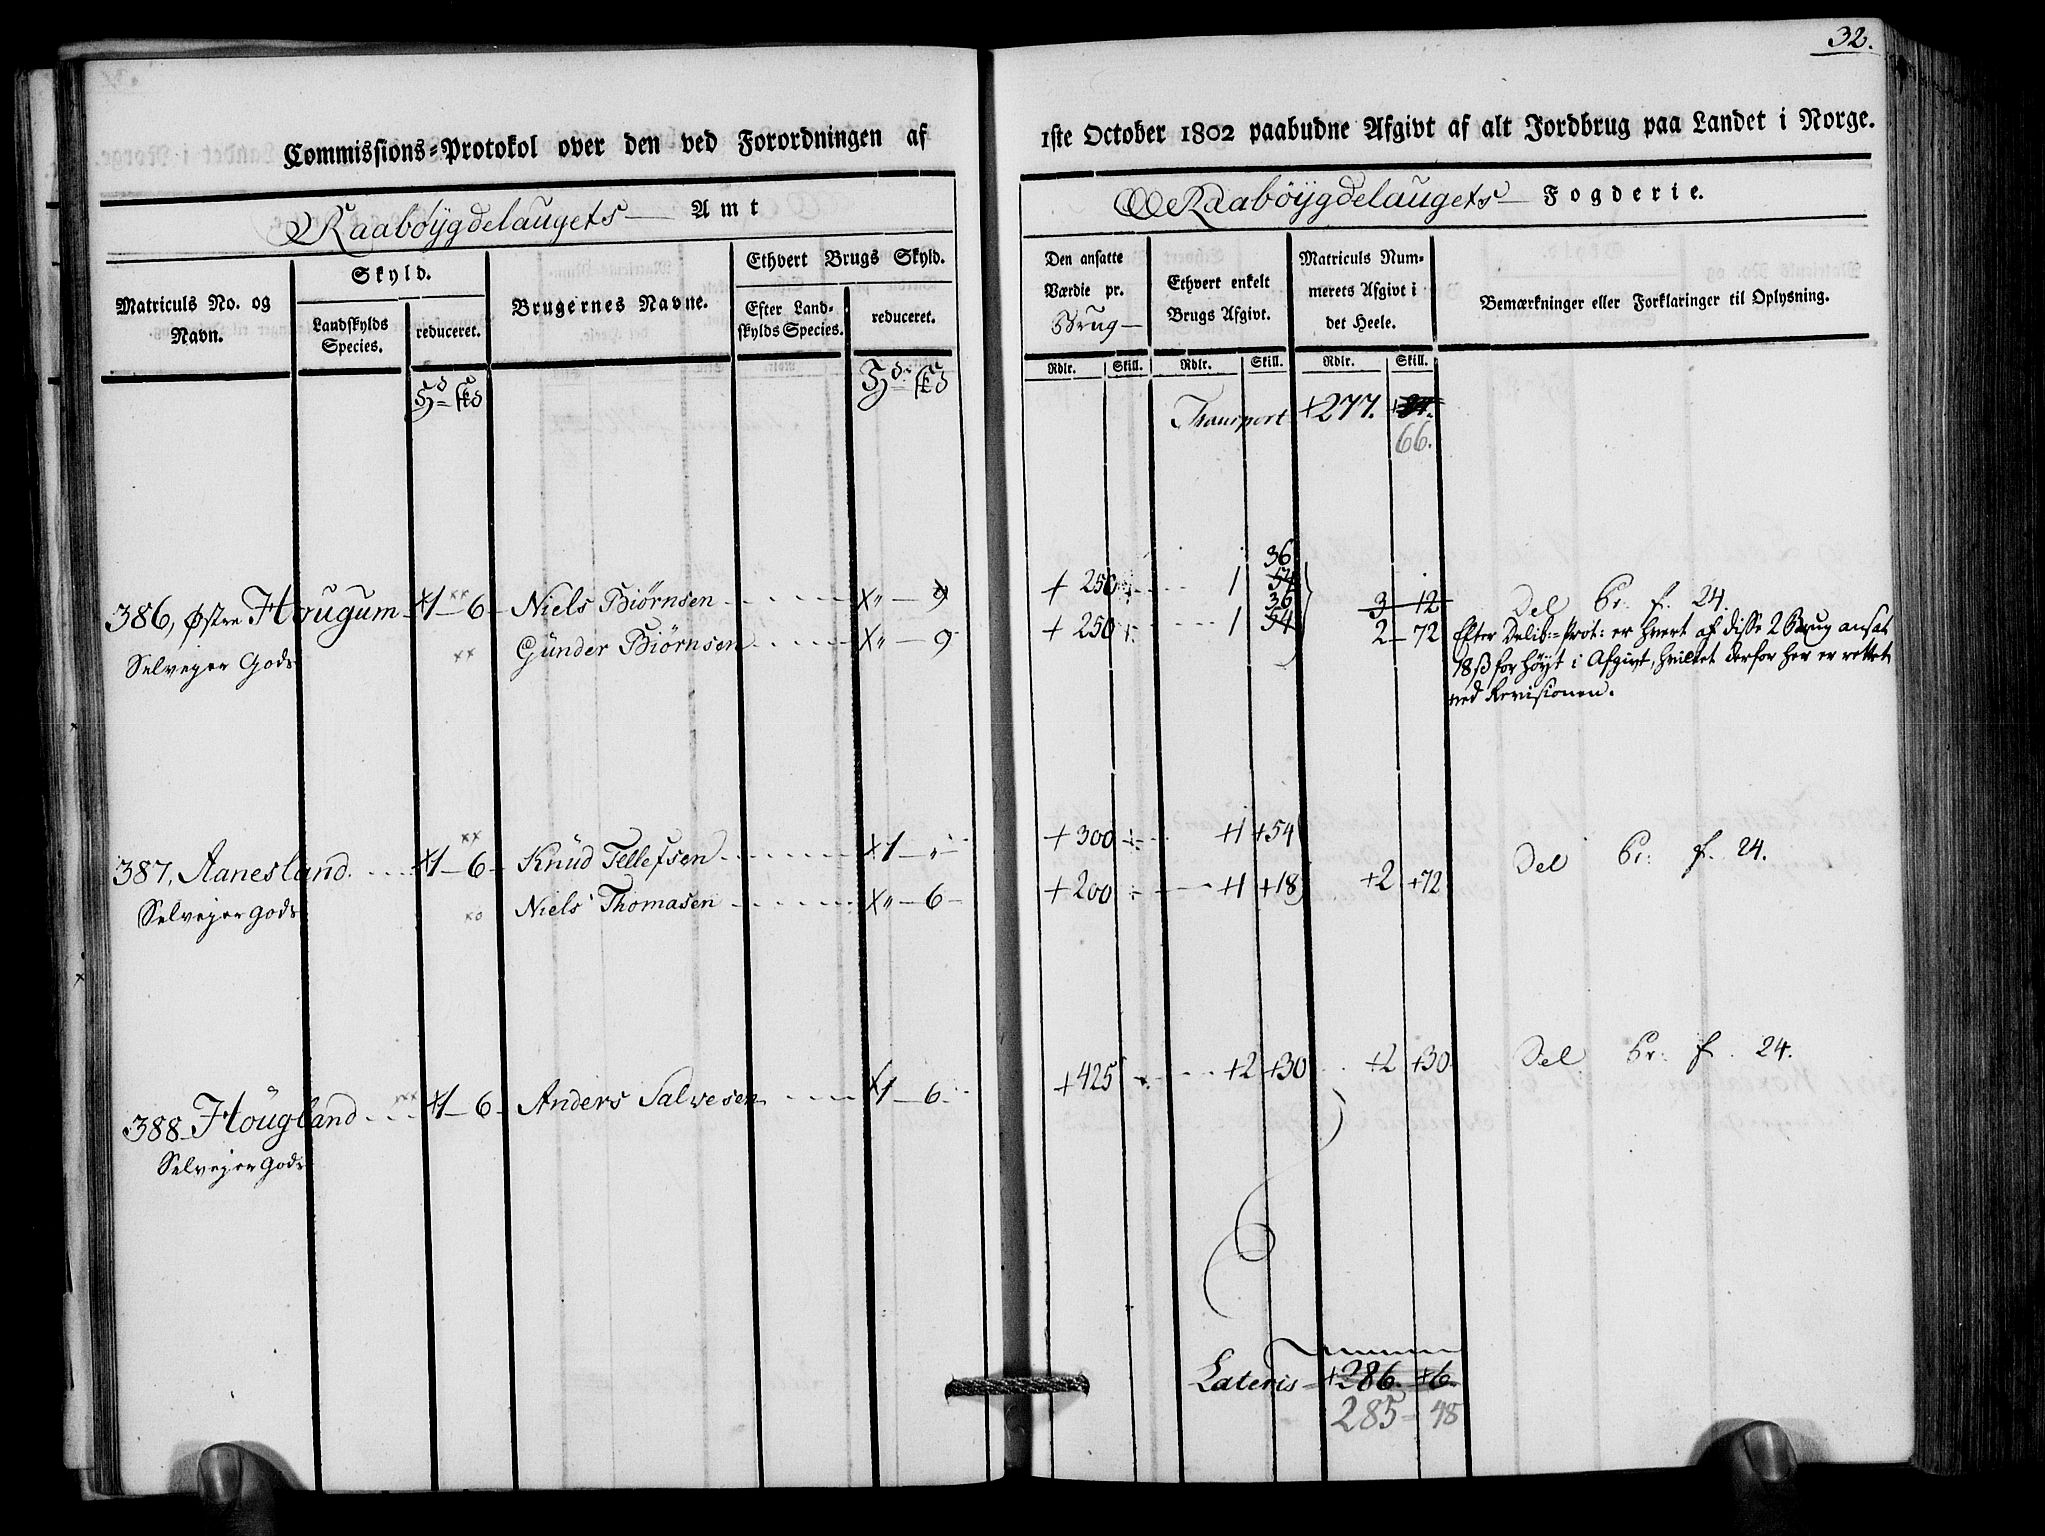 32.
Commissions=Protokol over den ved Forordningen af 1ste October 1802 paabudne Afgivt af alt Jordbrug paa Landet i Norge.
Raabøygdelaugets Amt
Raabøygdelaugets Fogderie.
Matriculs No. og Navn.
Skyld.
Landskylds Species.
reduceret.
Brugernes Navne.
Ethvert Brugs Skyld.
Efter Landskylds Species.
reduceret.
Den ansatte Værdie pr. Brug
Ethvert enkelt Brugs Afgivt.
Matriculs Nummerets Afgivt i det Heele.
Bemærkninger eller Forklaringer til Oplysning.
Rdlr. Skill. Rdlr. Skill. Rdlr. Skill.
Transport +277.
66.
36
386, Østre Hougum 1 6 Niels Biørnsen 9 + 250 1 54 3 12 Del Br: f. 24.
36
Gunder Biørnsen 9 + 250 1 54 2 72 Efter Delib:=Prot: er hvert af disse 2 Brug ansat
Selvejer Gods
18 ß for høyt i Afgivt, hvilket derfor her er rettet
ved Revisionen.
387, Aanesland 1 6 Knud Tellefsen 1 +300 +1 +54
Selvejer Gods Niels Thomasen 6 +200 +1 +18 +2 +72 Del Br: f. 24.
388 Hougland 1 6 Anders Salvesen 1 6 +425 +2 +30 +2 +30 Del Br: f. 24.
Selvejer Gods
Lateris +286. +6.
285 48